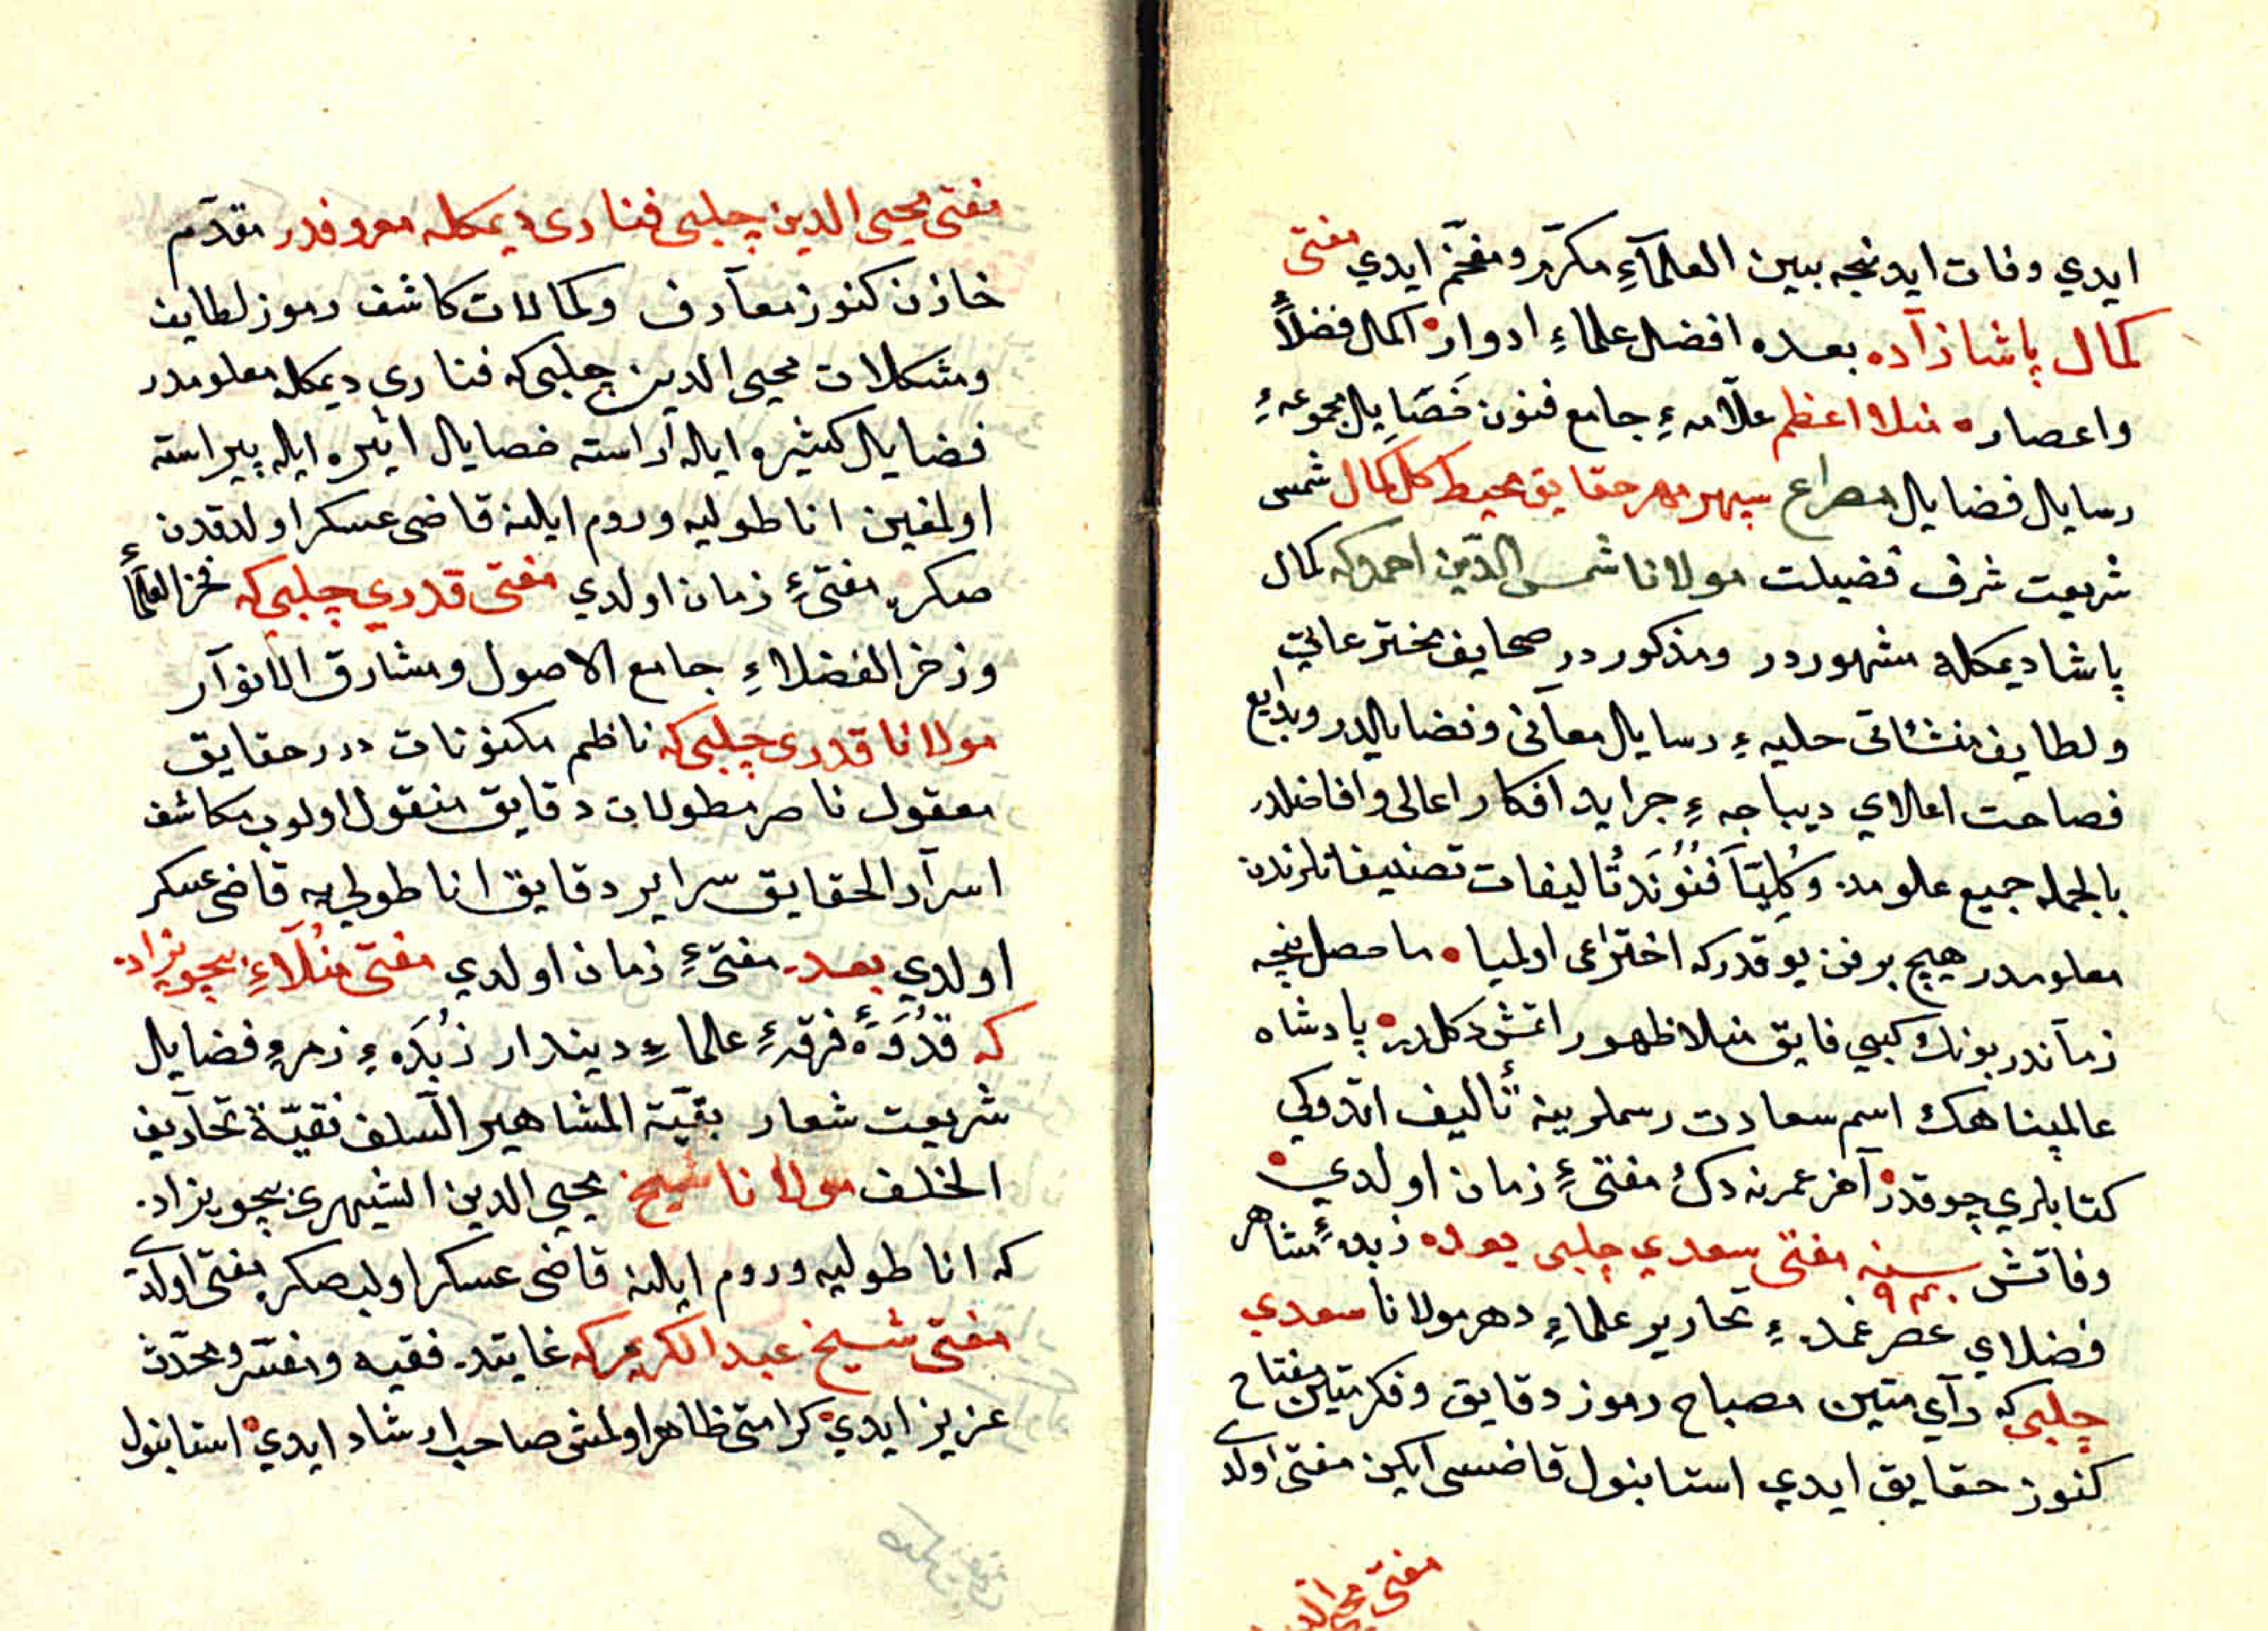 ايدي وفات ايدنجه ببين العلمآءِ مكرّم ومفخّم ايدي مفتى
كمال پاشا زآده بعده افضل علماءِ ادوار اكمل فضلاءِ
واعصاره منلا اعظم علّامهٔ جامع فنون خصايل مجموعهٔ
رسايل فضايل مصراع سپهر مهر حقايق محيط كل كمال شمس
شريعت شرف فضيلت مولانا شمس الدّين احمد كه كمال
پاشا ديمكله مشهوردر ومذكوردر صحايف مخترعاتي
ولطايف منشئاتى حليهٔ رسايل معآنى وفضايلدر وبدايع
فصاحت املاي ديباجهٔ جرايد افكار اعالى وافاضلدر
بالجمله جميع علومده وكليّاً فنونده تأليفات تصنيفاتلرندن
معلومدر هيچ بر فن يوقدركه اختراعى اولميا ماحصل نيجه
زمآندر بونك كبي فايق منلا ظهور اتمش دكلدر پادشاه
عالمپناهك اسم سعادت رسملرينه تأليف اتدوكي
كتابلري چوقدر آخر عمرنه دك مفتئ زمان اولدي
وفاتش سنه ٩٤٠ مفتى سعدي چلبى بعده زبدهٔ مشاهر
فضلاي عصر عمدهٔ تحارير علماءِ دهر مولانا سعدي
چلبى كه رآي متين مصباح رموز دقايق وفكر متين مفتاح
كنوز حقايق ايدي استانبول قاضسى ايكن مفتى اولدى
مفتى محى الدين
مفتى محيى الدين چلبى فنارى ديمكله معروفدر مقدّم
خازن كنوز معآرف وكمالات كاشف رموز لطايف
ومشكلات محيى الدين چلبى كه فناري ديمكله معلومدر
فضايل كثيره ايله آراسته خصايل اثيره ايله پيراسته
اولمغين اناطوليه وروم ايلنه قاضى عسكر اولدقدن
صكره مفتئ زمان اولدي مفتى قدري چلبى كه فخر العلمآءِ
وزخر الفضلاءِ جامع الاصول ومشارق الانوآر
مولانا قدرى چلبى كه ناظم مكنونات درر حقايق
معقول ناصر مطولات دقايق منقول اولوب مكاشف
اسرآر الحقايق سراير دقايق اناطوليه قاضى عسكر
اولدي بعده مفتئ زمان اولدي مفتى منلآءِ چويزاده
كه قدوهٔ فرقهٔ علماءِ ديندار زبدهٔ زمرهٔ فضايل
شريعت شعار بقيّة المشاهير السلف نقيّة تحآرير
الخلف مولانا شيخ محيى الدين الشهرى بچويزاده
كه اناطوليه وروم ايلنه قاضى عسكر اولب صكره مفتى اولدى
مفتى شيخ عبد الكريم كه غايتده فقيه ومفسّر ومحدّث
عزيز ايدي كرامتى ظاهر اولمش صاحب ارشاد ايدي استانبول